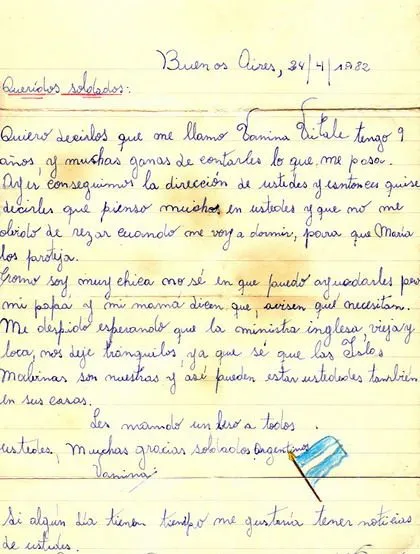 Buenos Aires, 24/4/1982
Queridos soldados:
Quiero decirlos que me llamo Vanina Vitale tengo 9
años, y muchas ganas de contarles lo que me pasa.
Ayer conseguimos la dirección de ustedes y entonces quise
decirles que pienso mucho, en ustedes y que no me
olvido de rezar cuando me voy a dormir, para que María
los proteja.
Como soy muy chica no sé en que puedo ayudarles pero
mi papá y mi mamá dicen, que, avisen que necesitan.
Me despido esperando que la ministra inglesa, vieja y
loca, nos deje tranquilos, ya que sé que las Islas
Malvinas son nuestras y así pueden estar ustededes también
en sus casas.
Les mando un beso a todos
ustedes, Muchas gracias soldados Argentinos
Vanina.
Si algún día tienen tiempo me gustaría tener noticias
de ustedes.